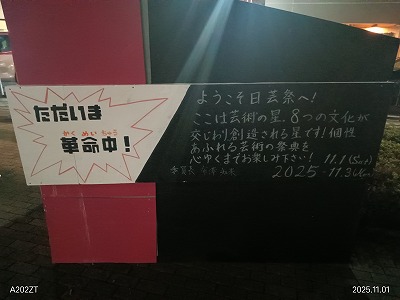 ただいま
かくめいちゅう
革命中！
ようこそ日芸祭へ！
ここは芸術の星。8つの文化が
交じわり創造される星です！個性
あふれる芸術の祭典を
心ゆくまでお楽しみ下さい！ 11.1(Sat)
2025 - 11.3(Mon)
A202ZT
2025.11.01